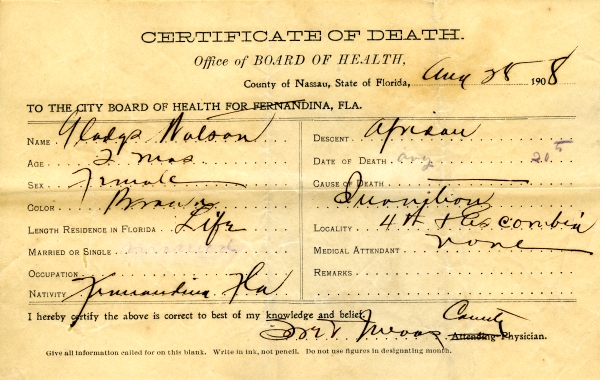 CERTIFICATE OF DEATH.
Office of BOARD OF HEALTH,
County of Nassau, State of Florida, Aug 28 1908
TO THE CITY BOARD OF HEALTH FOR FERNANDINA, FLA.
NAME Gladys Watson
AGE 2 mos
SEX Female
COLOR Brown
LENGTH RESIDENCE IN FLORIDA Life
MARRIED OR SINGLE
OCCUPATION
NATIVITY Fernandina Fla
DESCENT African
DATE OF DEATH Aug 20th
CAUSE OF DEATH
Inanition
LOCALITY 4th + Escambia
MEDICAL ATTENDANT none
REMARKS
I hereby certify the above is correct to best of my knowledge and belief.
County
Attending Physician.
Give all information called for on this blank. Write in ink, not pencil. Do not use figures in designating month.